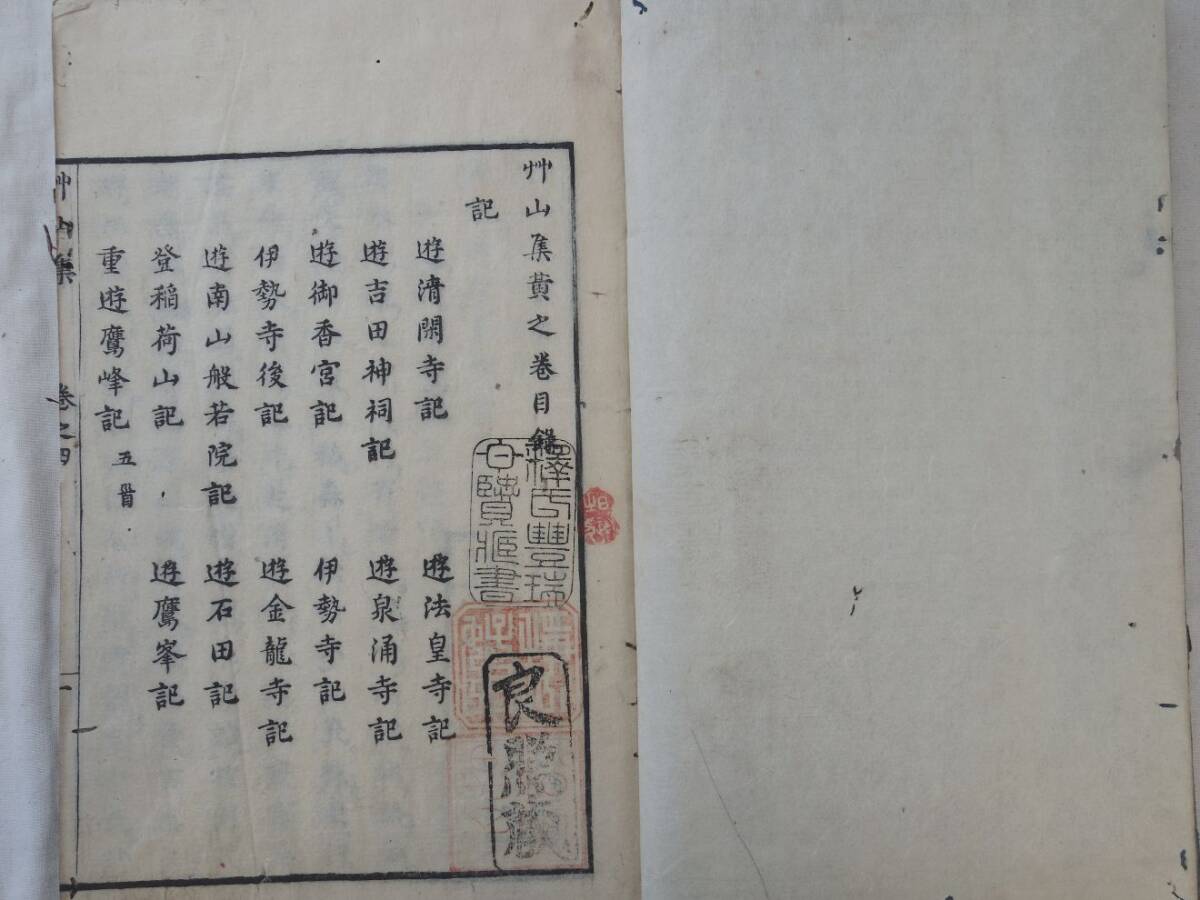 艸山集黄之巻目録
記
遊清閑寺記　遊法皇寺記
遊吉田神祠記　遊泉涌寺記
遊御香宮記　伊勢寺記
伊勢寺後記　遊金龍寺記
遊南山般若院記　遊石田記
登稲荷山記　遊鷹峯記
重遊鷹峰記 五首
艸山集　巻之四　一
釋氏豐瑞
百覽藏書
良